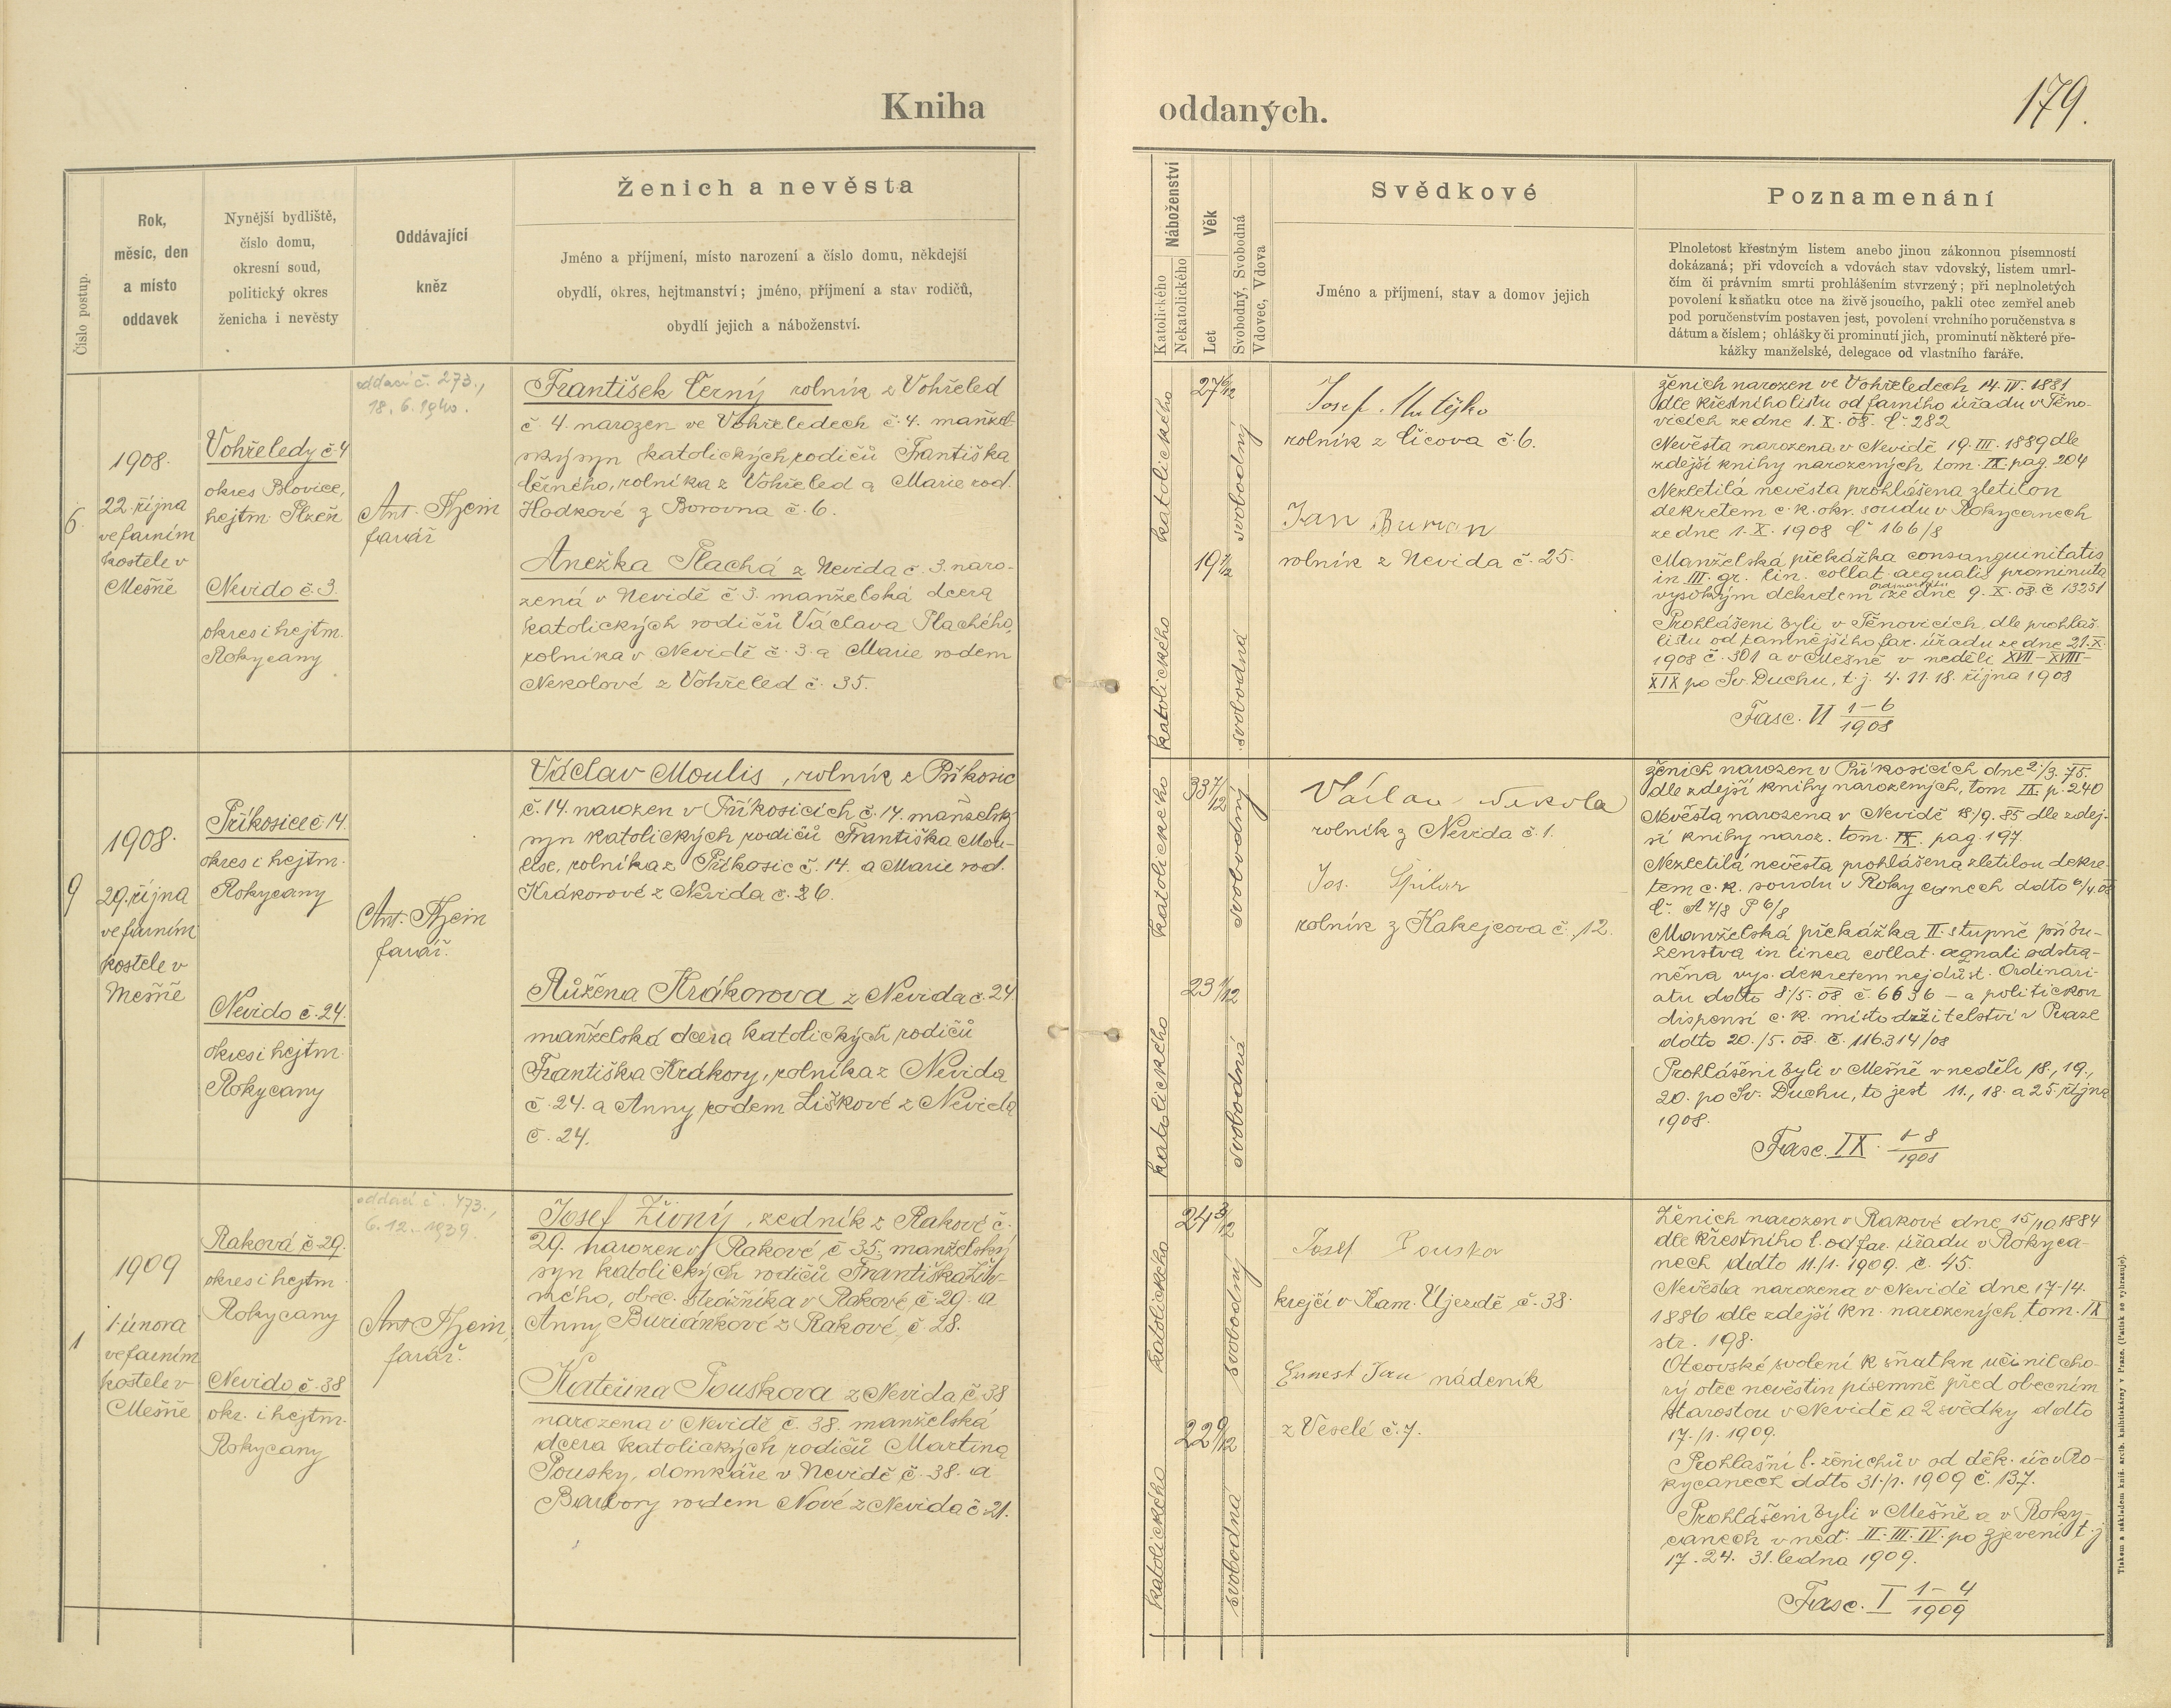 Kniha oddaných.
179.
Číslo postup.
Rok,
měsíc, den
a místo
oddavek
Nynější bydliště,
číslo domu,
okresní soud,
politický okres
ženicha i nevěsty
Oddávající
kněz
Ženich a nevěsta
Jméno a příjmení, místo narození a číslo domu, někdejší
obydlí, okres, hejtmanství; jméno, příjmení a stav rodičů,
obydlí jejich a náboženství.
Náboženství
Katolického
Nekatolického
Věk
Let
Svobodný, Svobodná
Vdovec, Vdova
Svědkové
Jméno a příjmení, stav a domov jejich
Poznamenání
Plnoletost křestným listem anebo jinou zákonnou písemností
dokázaná; při vdovcích a vdovách stav vdovský, listem umrl-
čím či právním smrti prohlášením stvrzený; při neplnoletých
povolení k sňatku otce na živě jsoucího, pakli otec zemřel aneb
pod poručenstvím postaven jest, povolení vrchního poručenstva s
dátum a číslem; ohlášky či prominutí jich, prominutí některé pře-
kážky manželské, delegace od vlastního faráře.
6.
1908.
22 října
ve farním
kostele v
Mešně
Vohřeledy č 4
okres Blovice,
hejtm. Plzeň
Nevido č. 3.
okres i hejtm.
Rokycany
oddací č. 273.,
18. 6. 1940.
Ant.
farář
František Černý rolník z Vohřeled
č. 4. narozen ve Vohřeledech č. 4. manžel-
ský syn katolických rodičů Františka
Černého, rolníka z Vohřeled a Marie rod.
Hodkové z Borovna č. 6.
Anežka Plachá z Nevida č. 3. naro-
zená v Nevidě č. 3. manželská dcera
katolických rodičů Václava Plachého,
rolníka v Nevidě č. 3. a Marie rodem
Nekolové z Vohřeled č. 35.
katolického
katolického
27 6/12
19 7/12
svobodný
svobodná
Josef
rolník z Číčova č. 6.
Jan Burian
rolník z Nevida č. 25.
Ženich narozen ve Vohřeledech 14. IV. 1881
dle křestního listu od farního úřadu v Těno-
vicích ze dne 1. X. 08. č. 282
Nevěsta narozena v Nevidě 19. III. 1889 dle
zdejší knihy narozených tom. IX. pag. 204
Nezletilá nevěsta prohlášena zletilou
dekretem c. k. okr. soudu v Rokycanech
ze dne 1. X. 1908 č. 166/8
Manželská překážka consanguinitatis
in III. gr. lin. collat. aequalis prominuta
vysokým dekretem ordinariátu ze dne 9. X. 08 č 13251
Prohlášeni byli v Těnovicích, dle prohláš.
listu od tamnějšího far. úřadu ze dne 21. X.
1908 č. 301 a v Mešně v neděli XVII – XVIII –
XIX po Sv. Duchu, t. j. 4. 11. 18. října 1908
Fasc. VI 1–6/1908
9
1908.
29. října
ve farním
kostele v
Mešně
Příkosice č. 14.
okres i hejtm.
Rokycany
Nevido č. 24.
okres i hejtm.
Rokycany
Ant.
farář.
Václav Moulis, rolník z Příkosic
č. 14. narozen v Příkosicích č. 14. manželský
syn katolických rodičů Františka Mou-
lise, rolníka z Příkosic č. 14. a Marie rod.
Krákorové z Nevida č. 26.
Růžena Krákorova z Nevida č. 24
manželská dcera katolických rodičů
Františka Krákory, rolníka z Nevida
č. 24. a Anny rodem Liškové z Nevida
č. 24.
katolického
katolického
33 7/12
23 1/12
svobodný
svobodná
Václav Nekola
rolník z Nevida č. 1.
Jos.
rolník z Kakejcova č. 12.
Ženich narozen v Příkosicích dne 2./3. 75.
dle zdejší knihy narozených, tom IX. p. 240
Nevěsta narozena v Nevidě 18/9. 85 dle zdej-
ší knihy naroz. tom. IX. pag 197.
Nezletilá nevěsta prohlášena zletilou dekre-
tem c. k. soudu v Rokycanech ddto 6/4. 08
č. A 7/8 P 6/8
Manželská překážka II. stupně příbu-
zenstva in linea collat. aequali odstra-
něna vys. dekretem nejdůst. Ordinari-
atu ddto 8./5. 08 č. 6636 – a politickou
dispensí c. k. místodržitelství v Praze
ddto 20. /5. 08. č. 116.314/08
Prohlášeni byli v Mešně v neděli 18., 19.,
20. po Sv. Duchu, to jest 11., 18. a 25. října
1908.
Fasc. IX. 1–8/1908
1
1909
1. února
ve farním
kostele v
Mešně
Raková č 29.
okres i hejtm.
Rokycany
Nevido č. 38
okr. i hejtm.
Rokycany
oddací č. 473.,
6. 12. 1939.
Ant.
farář.
Josef Živný, zedník z Rakové č.
29. narozen v Rakové č 35. manželský
syn katolických rodičů Františka Živ-
ného, obec. strážníka v Rakové č 29. a
Anny Buriánkové z Rakové, č 28.
Kateřina Pouskova z Nevida, č 38
narozena v Nevidě č. 38. manželská
dcera katolických rodičů Martina
Pousky, domkáře v Nevidě č. 38. a
Barbory rodem Nové z Nevida č. 21.
katolického
katolického
24 3/12
22 9/12
svobodný
svobodná
Josef Pouska
krejčí v Kam. Újezdě č. 38.
nádeník
z Veselé č. 7.
Ženich narozen v Rakové dne 15/10 1884
dle křestního l. od far. úřadu v Rokyca-
nech ddto 11./1. 1909. č. 45.
Nevěsta narozena v Nevidě dne 17./4.
1886 dle zdejší kn. narozených tom. IX
str. 198.
Otcovské svolení k sňatku učinil cho-
rý otec nevěstin písemně před obecním
starostou v Nevidě a 2 svědky ddto
17. /1. 1909.
Prohlašní l. ženichův od děk. úř. v Ro-
kycanech ddto 31./1. 1909 č. 137.
Prohlášeni byli v Mešně a v Roky-
canech v ned. II. III. IV. po Zjevení t. j.
17. 24. 31. ledna 1909.
Fasc. I 1–4/1909
Tiskem a nákladem kníž. arcib. knihtiskárny v Praze. (Patisk se vyhrazuje).